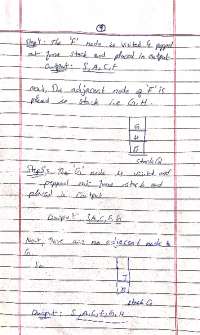 Step4: The 'F' node is visited & popped
out from stack and placed in output.
Output: S,A,C,F
Next, The adjacent node of 'F' is
placed in stack i.e G,H.
G
H
B
stack Q
Step5: The 'G' node is visited and
popped out from stack and
placed in output
Output: S,A,C,F,G
Next, there are no adjacent node to
G.
i.e
B
stack Q
Output: S,A,C,F,G,H